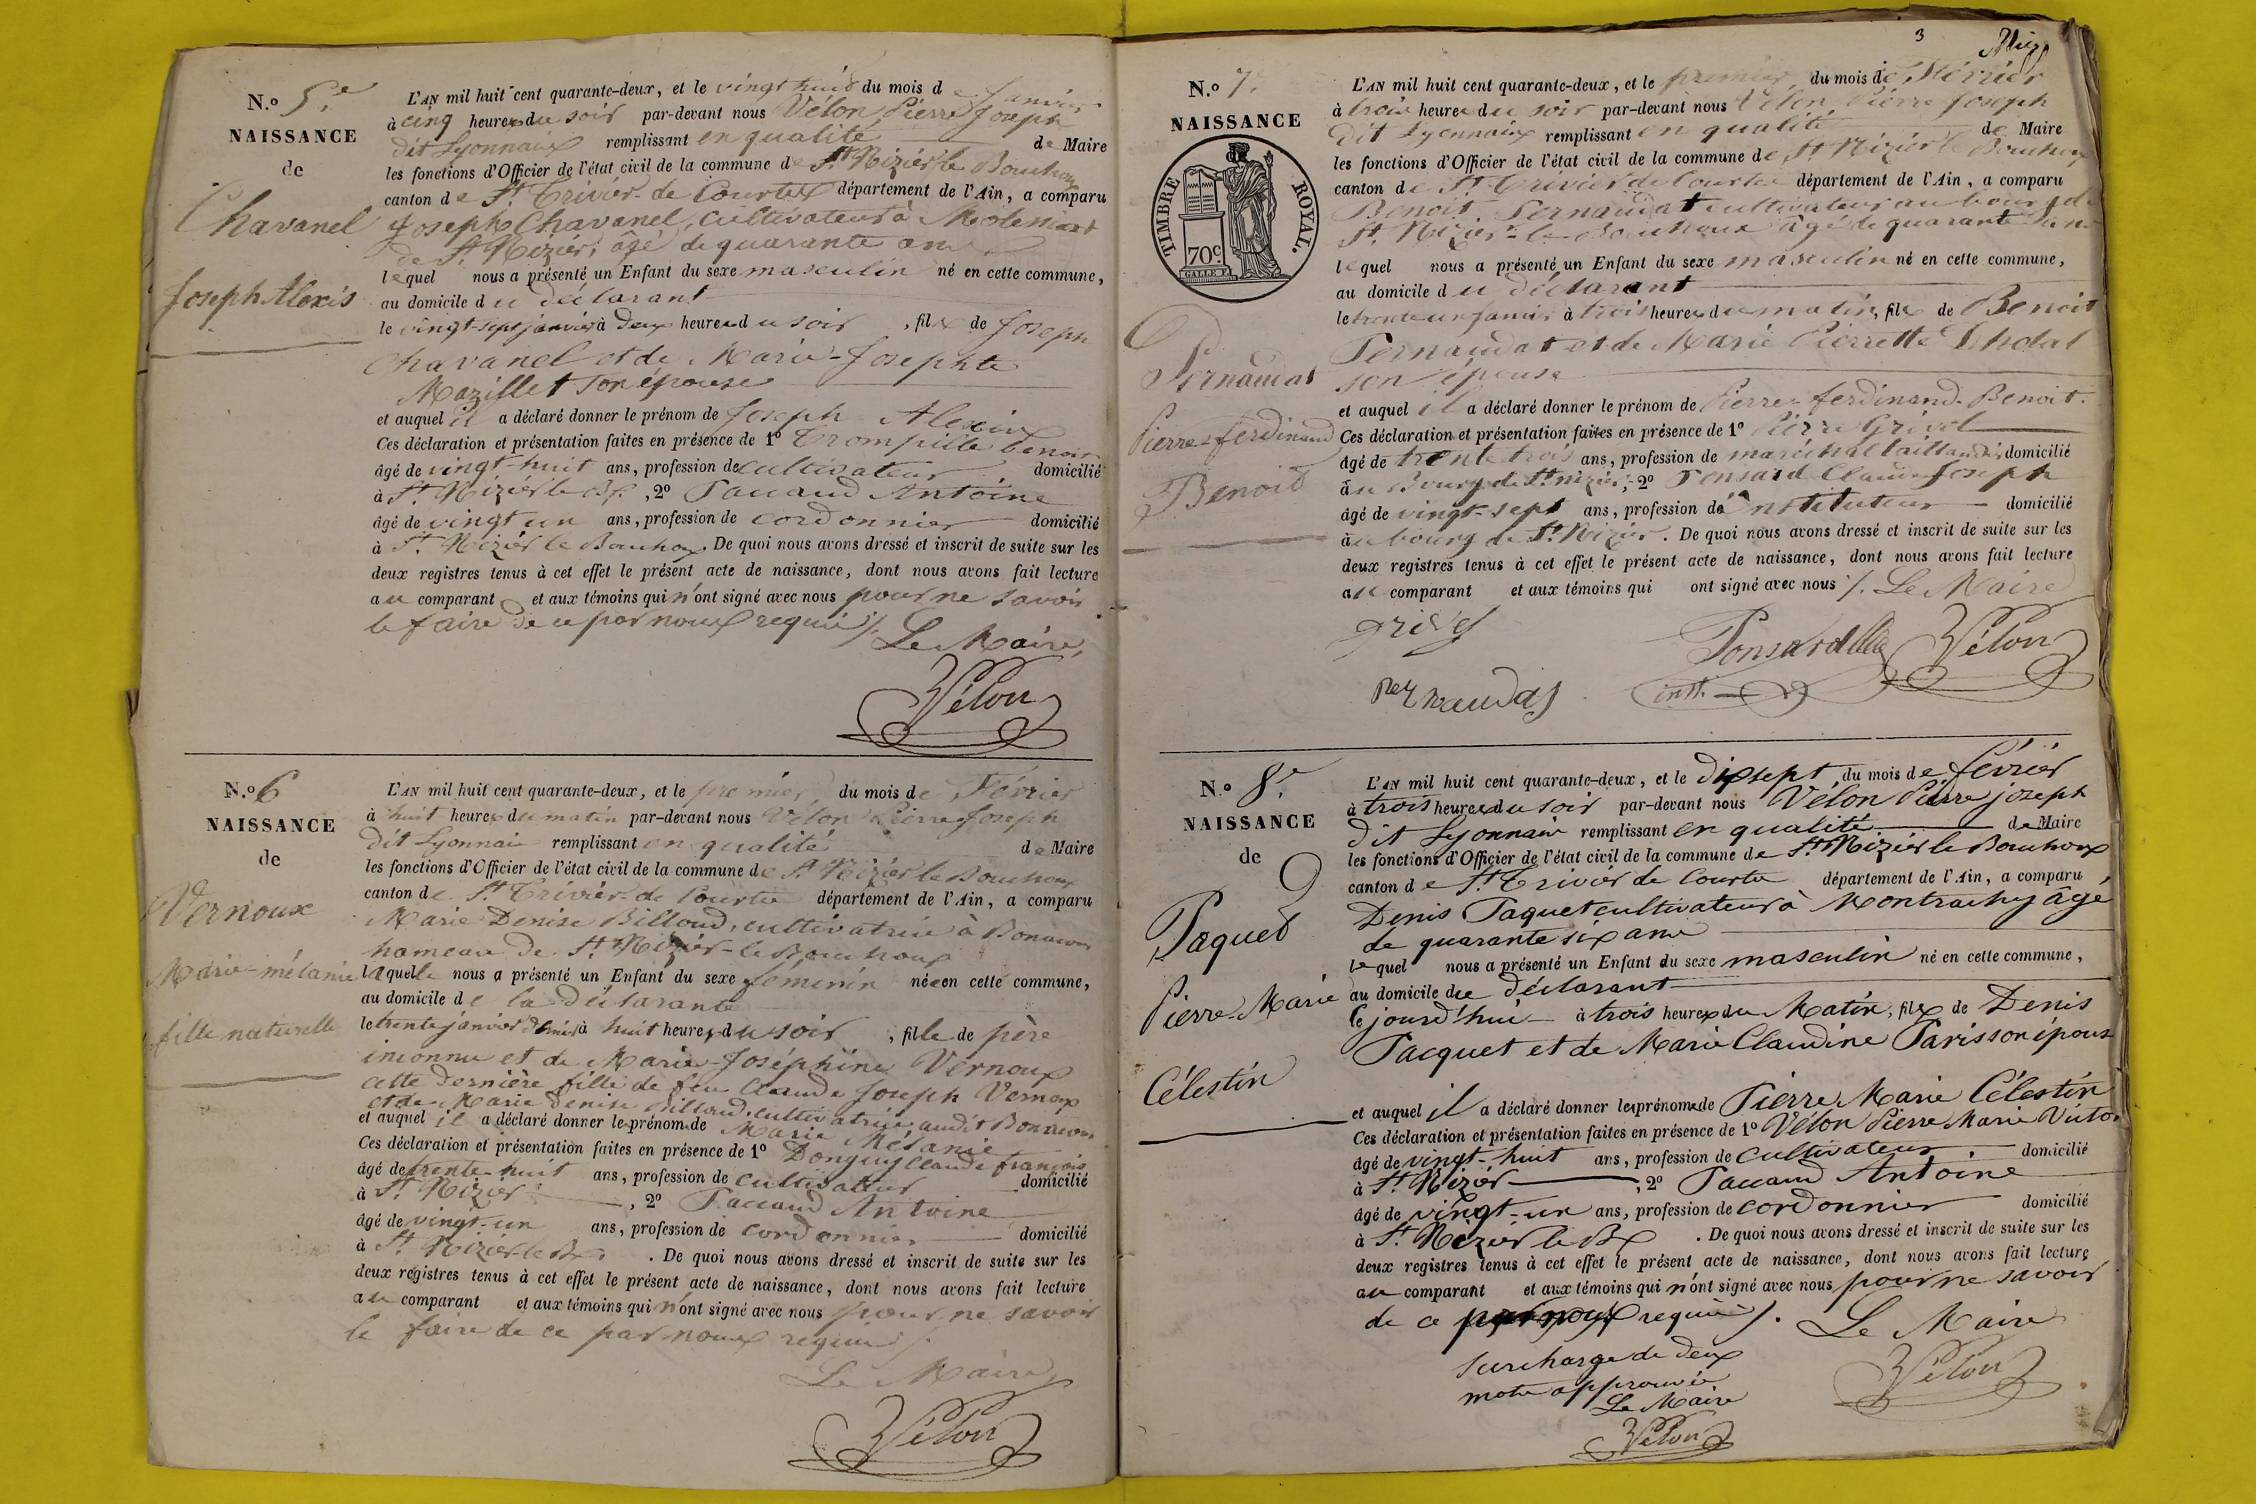 N.o 5.e
NAISSANCE
de
Chavanel
Joseph Alexis
L'AN mil huit cent quarante-deux, et le vingt huit du mois de janvier
à cinq heures du soir par-devant nous Vélon Pierre Joseph
dit Lyonnais remplissant en qualité de Maire
les fonctions d'Officier de l'état civil de la commune de St. Nizier le Bouhoux
canton de St. Trivier de Courtes département de l'Ain, a comparu
Joseph Chavanel, cultivateur à
de St. Nizier, âgé de quarante ans
lequel nous a présenté un Enfant du sexe masculin né en cette commune,
au domicile du déclarant
le vingt-sept janvier à deux heures du soir, fils de Joseph
Chavanel et de Marie-Josephte
Mazillet son épouse
et auquel il a déclaré donner le prénom de Joseph Alexis
Ces déclaration et présentation faites en présence de 1o Trompille benoit
âgé de vingt-huit ans, profession de cultivateur domicilié
à St. Nizier le Bx, 2o Paccaud Antoine
âgé de vingt un ans, profession de cordonnier domicilié
à St. Nizier le Bouhoux. De quoi nous avons dressé et inscrit de suite sur les
deux registres tenus à cet effet le présent acte de naissance, dont nous avons fait lecture
au comparant et aux témoins qui n'ont signé avec nous pour ne savoir
le faire de ce par nous requis /.
Le Maire,
Vélon
N.o 6
NAISSANCE
de
Vernoux
Marie-mélanie
fille naturelle
L'AN mil huit cent quarante-deux, et le premier du mois de Février
à huit heures du matin par-devant nous Vélon Pierre Joseph
dit Lyonnais remplissant en qualité de Maire
les fonctions d'Officier de l'état civil de la commune de St Nizier le Bouhoux
canton de St. Trivier de Courtes département de l'Ain, a comparu
Marie Denise Billoud, cultivatrice à
hameau de St. Nizier-le Bouhoux
laquelle nous a présenté un Enfant du sexe féminin née en cette commune,
au domicile de la déclarante
le trente janvier dernier à huit heures du soir, fille de père
inconnu et de Marie-Joséphine Vernoux
cette dernière fille de feu Claude Joseph Vernoux
et de Marie Denise Billoud, cultivatrice audit
et auquel il a déclaré donner les prénoms de Marie Mélanie
Ces déclaration et présentation faites en présence de 1o Donguy Claude François
âgé de trente-huit ans, profession de cultivateur domicilié
à St. Nizier, 2o Paccaud Antoine
âgé de vingt-un ans, profession de cordonnier domicilié
à St. Nizier le Bx. De quoi nous avons dressé et inscrit de suite sur les
deux registres tenus à cet effet le présent acte de naissance, dont nous avons fait lecture
au comparant et aux témoins qui n'ont signé avec nous pour ne savoir
le faire de ce par nous requis /.
Le Maire,
Vélon
3
N.o 7.
NAISSANCE
TIMBRE ROYAL.
70c
GALLE F.
Pernaudat
Pierre-ferdinand
Benoit
L'AN mil huit cent quarante-deux, et le premier du mois de Février
à trois heures du soir par-devant nous Vélon Pierre Joseph
dit Lyonnais remplissant en qualité de Maire
les fonctions d'Officier de l'état civil de la commune de St. Nizier le Bouhoux
canton de St. Trivier de Courtes département de l'Ain, a comparu
Benoit Pernaudat cultivateur au bourg de
St. Nizier-le Bouhoux âgé de quarante
lequel nous a présenté un Enfant du sexe masculin né en cette commune,
au domicile du déclarant
le trente un janvier à trois heures du matin, fils de Benoit
Pernaudat et de Marie Pierrette
son épouse
et auquel il a déclaré donner le prénom de Pierre-ferdinand-Benoit.
Ces déclaration et présentation faites en présence de 1o Pierre Grivel
âgé de trente trois ans, profession de maréchal taillandier domicilié
au Bourg de St. nizier, 2o Ponsard Claude Joseph
âgé de vingt-sept ans, profession d'instituteur domicilié
au bourg de St. Nizier. De quoi nous avons dressé et inscrit de suite sur les
deux registres tenus à cet effet le présent acte de naissance, dont nous avons fait lecture
au comparant et aux témoins qui ont signé avec nous /. Le Maire
grivel
Ponsard
Vélon
inst.
pernaudat
N.o 8.e
NAISSANCE
de
Paquet
Pierre-Marie
Célestin
L'AN mil huit cent quarante-deux, et le dix sept du mois de février
à trois heures du soir par-devant nous Vélon Pierre joseph
dit Lyonnais remplissant en qualité de Maire
les fonctions d'Officier de l'état civil de la commune de St. Nizier le Bouhoux
canton de St. Trivier de Courtes département de l'Ain, a comparu
Denis Paquet cultivateur à Montrachy âgé
de quarante six ans
lequel nous a présenté un Enfant du sexe masculin né en cette commune,
au domicile du déclarant
le jourd'hui à trois heures du Matin, fils de Denis
Pacquet et de Marie Claudine Paris son épouse
et auquel il a déclaré donner les prénoms de Pierre Marie Célestin
Ces déclaration et présentation faites en présence de 1o Vélon Pierre Marie Victor
âgé de vingt-huit ans, profession de cultivateur domicilié
à St. Nizier, 2o Paccaud Antoine
âgé de vingt-un ans, profession de cordonnier domicilié
à St. Nizier le Bx. De quoi nous avons dressé et inscrit de suite sur les
deux registres tenus à cet effet le présent acte de naissance, dont nous avons fait lecture
au comparant et aux témoins qui n'ont signé avec nous pour ne savoir
de ce par nous requis /. Le Maire
Vélon
Surcharge de deux
mots approuvée
Le Maire
Vélon